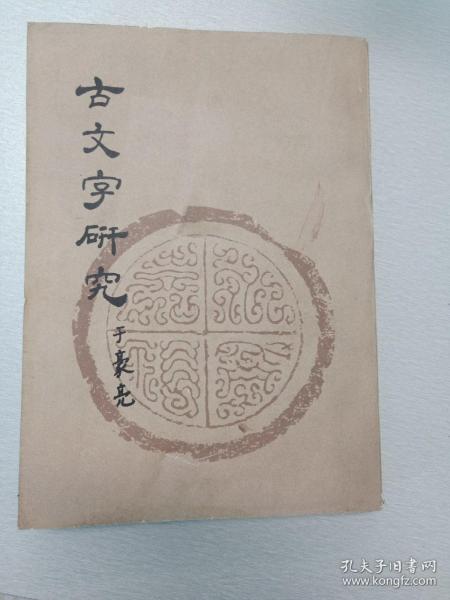 古文字研究
于豪亮
孔夫子旧书网
www.kongfz.com